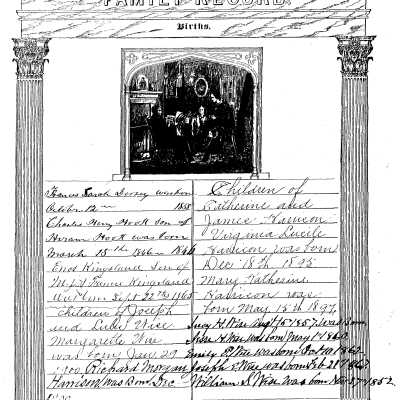 FAMILY RECORD.
Births.
Frances Sarah Dorsey was born
October 12th 1838
Charles Henry Hook son of
Hiram Hook was born
March 15th 1866
Enos Kingsland Son of
M. J. & Frances Kingsland
was born Sept 22nd 1865
Children of Joseph
and Lula Wise
Margarette Wise
was born Jan. 29
1900 Richard Morgan
Harrison was Born Dec
Children of
Catherine and
James Harrison
Virginia Lucile
Harrison was born
Dec 18th 1895
Mary Katherine
Harrison was
born May 15th 1897
Lucy H. Wise Aug 15 1857. was born
Jesse H. Wise was born May 14 1860
Emily P. Wise was born Oct 10 1862
Joseph E. Wise was born Feb 28th 1867
William S. Wise was born Nov 27th 1852